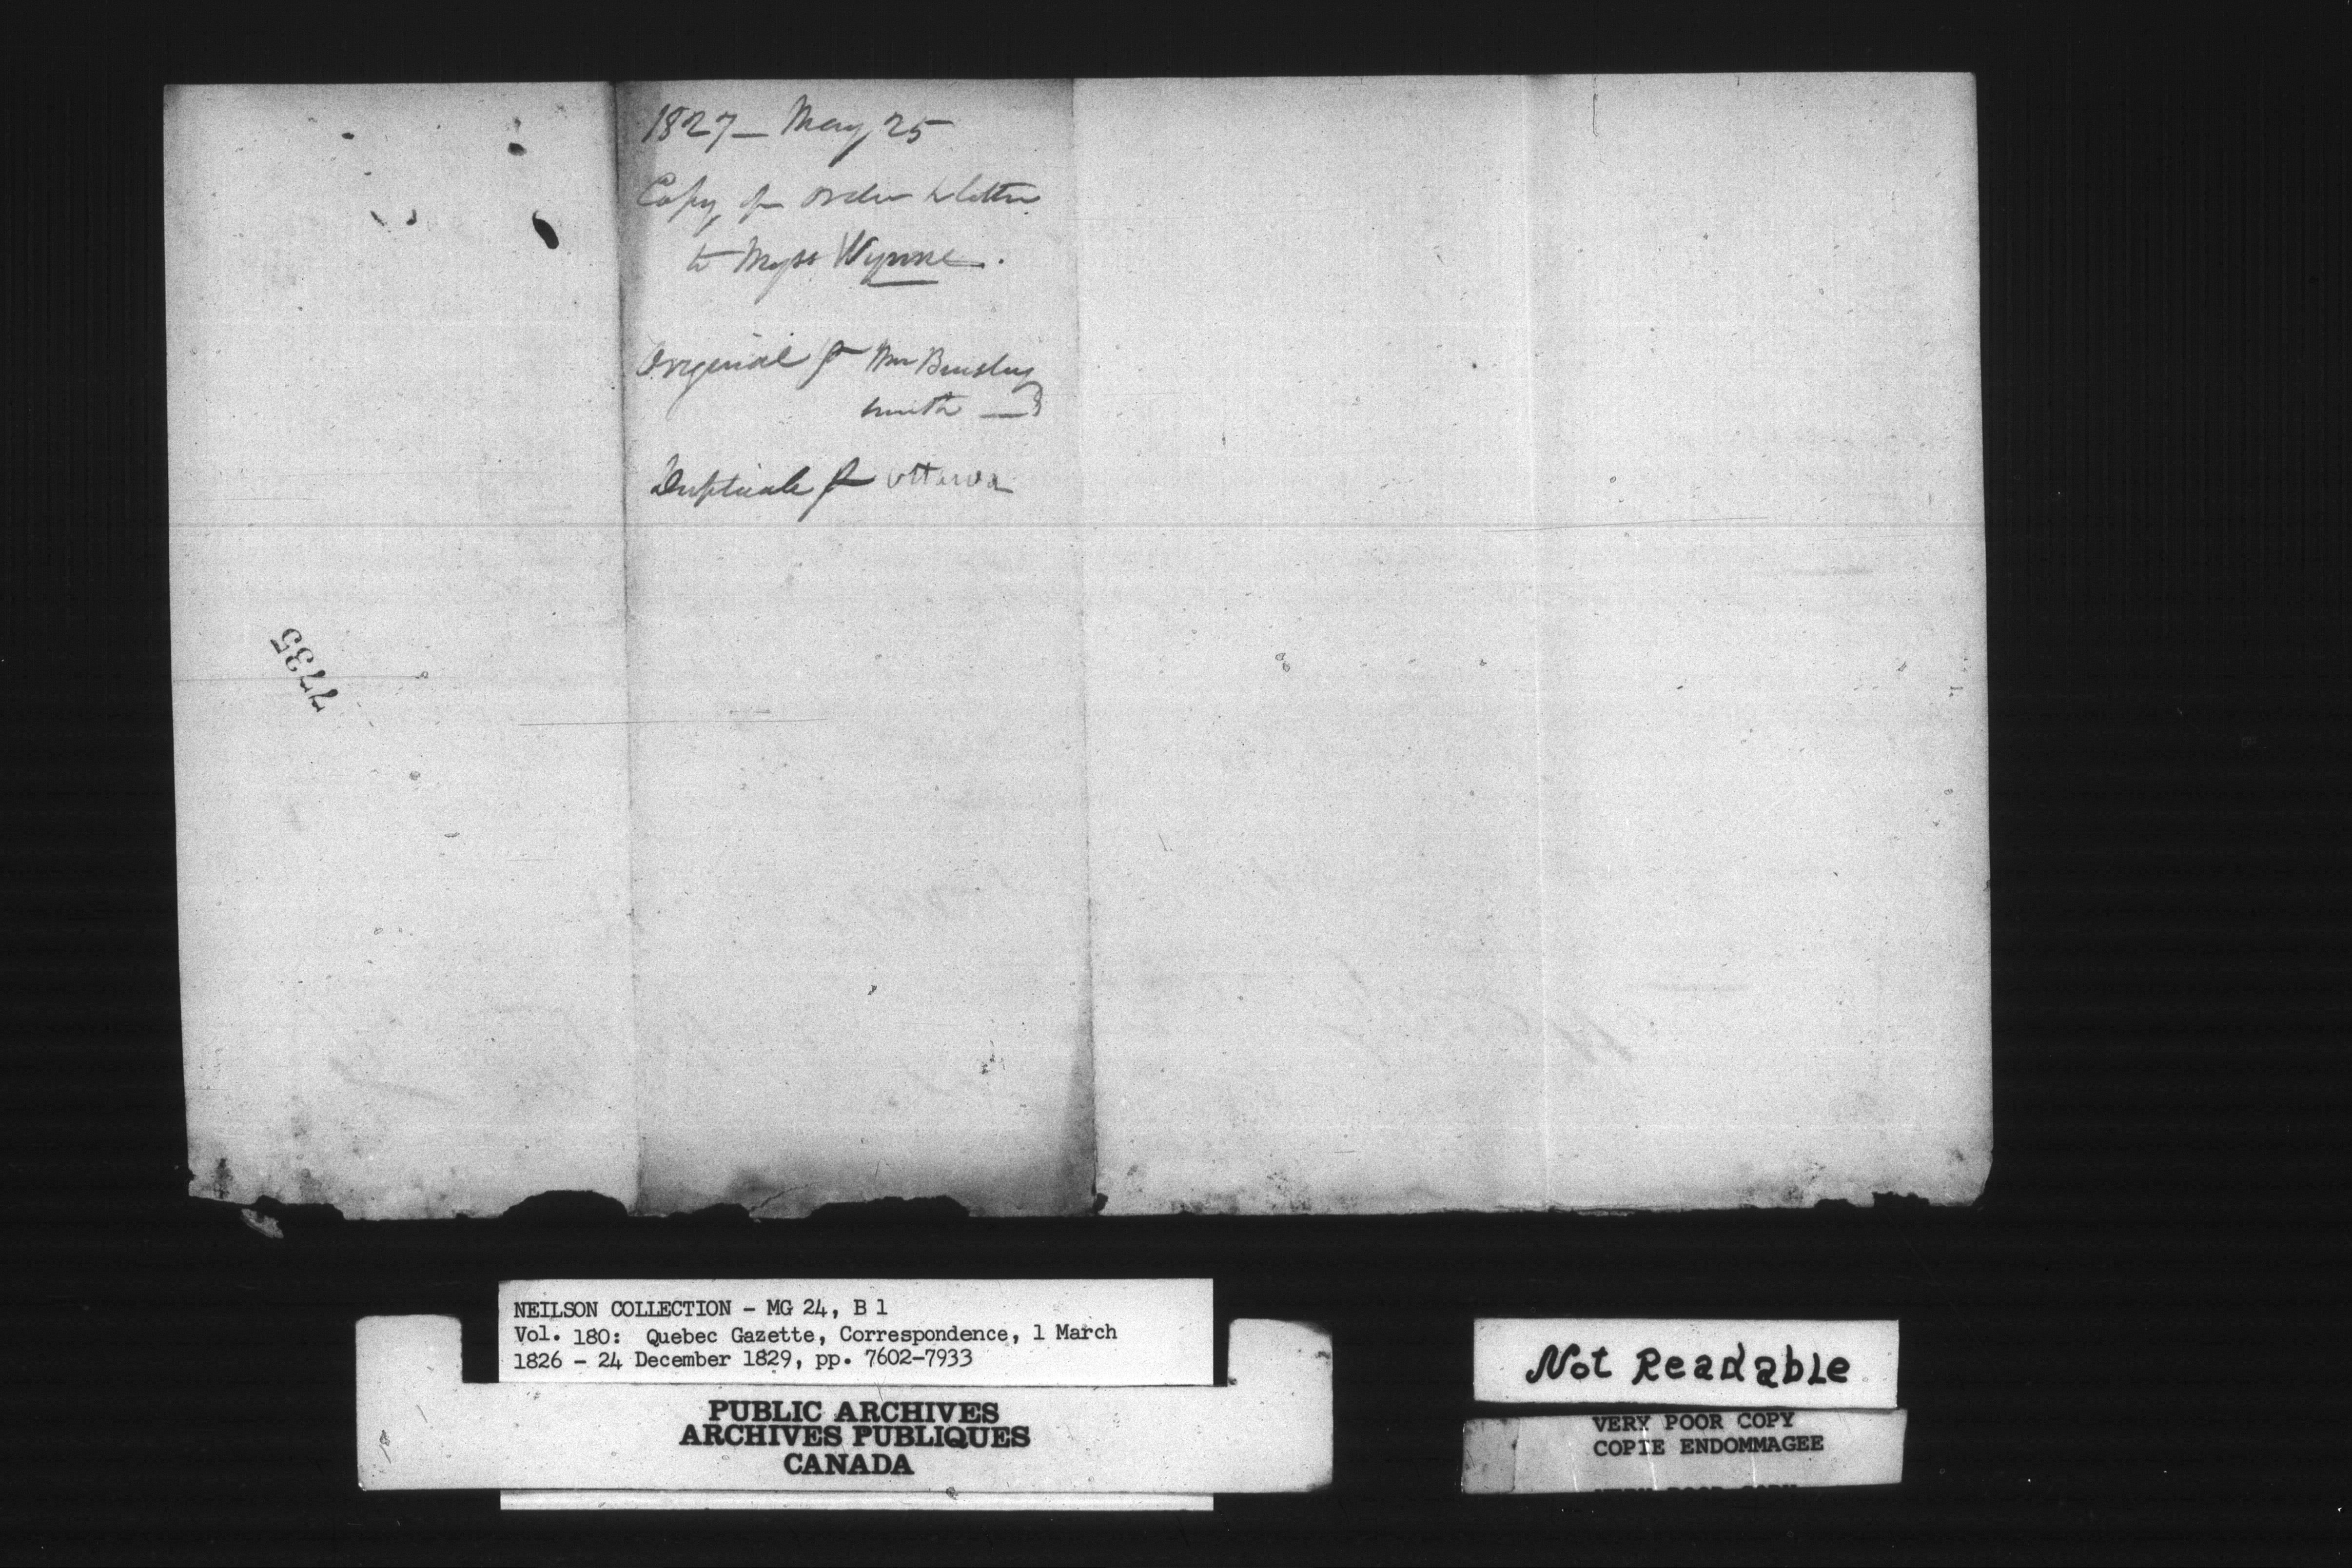 1827 – May 25
Copy of order & letter
to Messrs Wynne.
Original p Mr
Smith —
Duplicate p Ottawa
7735
NEILSON COLLECTION - MG 24, B 1
Vol. 180: Quebec Gazette, Correspondence, 1 March
1826 - 24 December 1829, pp. 7602-7933
PUBLIC ARCHIVES
ARCHIVES PUBLIQUES
CANADA
Not Readable
VERY POOR COPY
COPIE ENDOMMAGEE